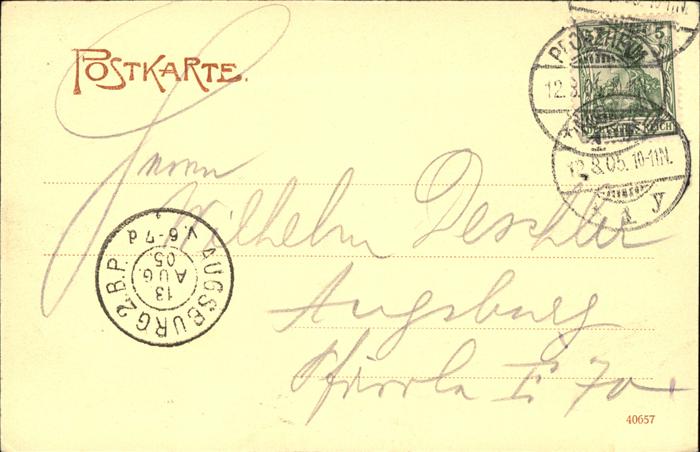 POSTKARTE.
PFORZHEIM
12.8.05. 10-11N.
5
REICH
12.8.05. 10-11N.
* a y
Herrn
Wilhelm Deschler
Augsburg
E 70
AUGSBURG 2. B.P.
13
AUG.
05
V.6-7
40657